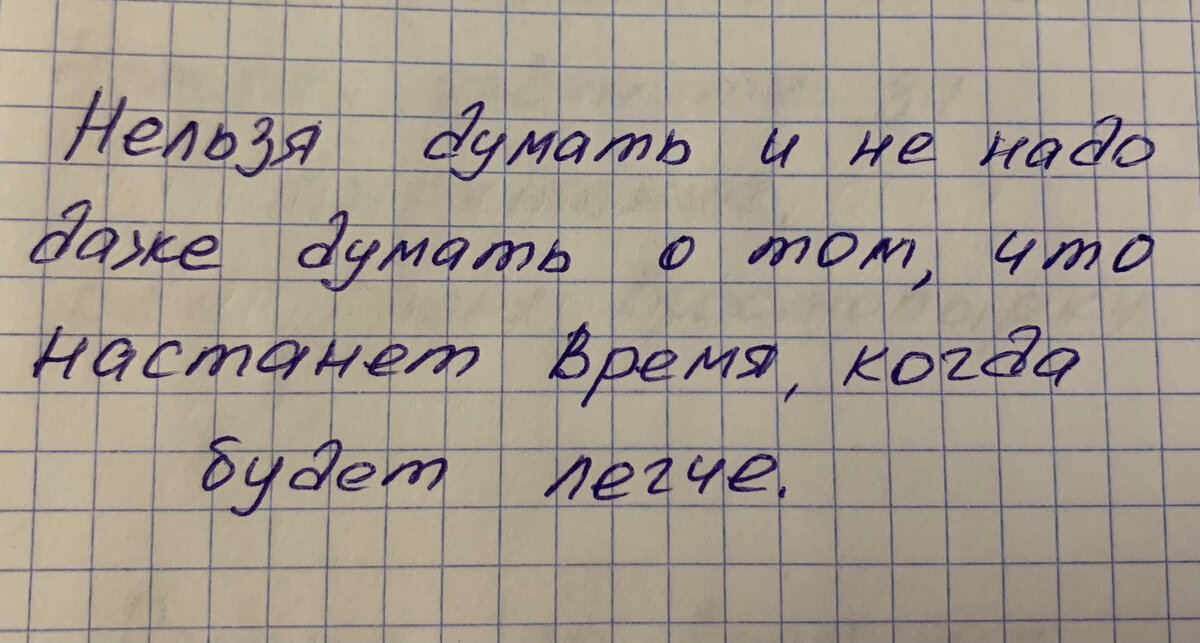 Нельзя думать и не надо
даже думать о том, что
настанет время, когда
будет легче.